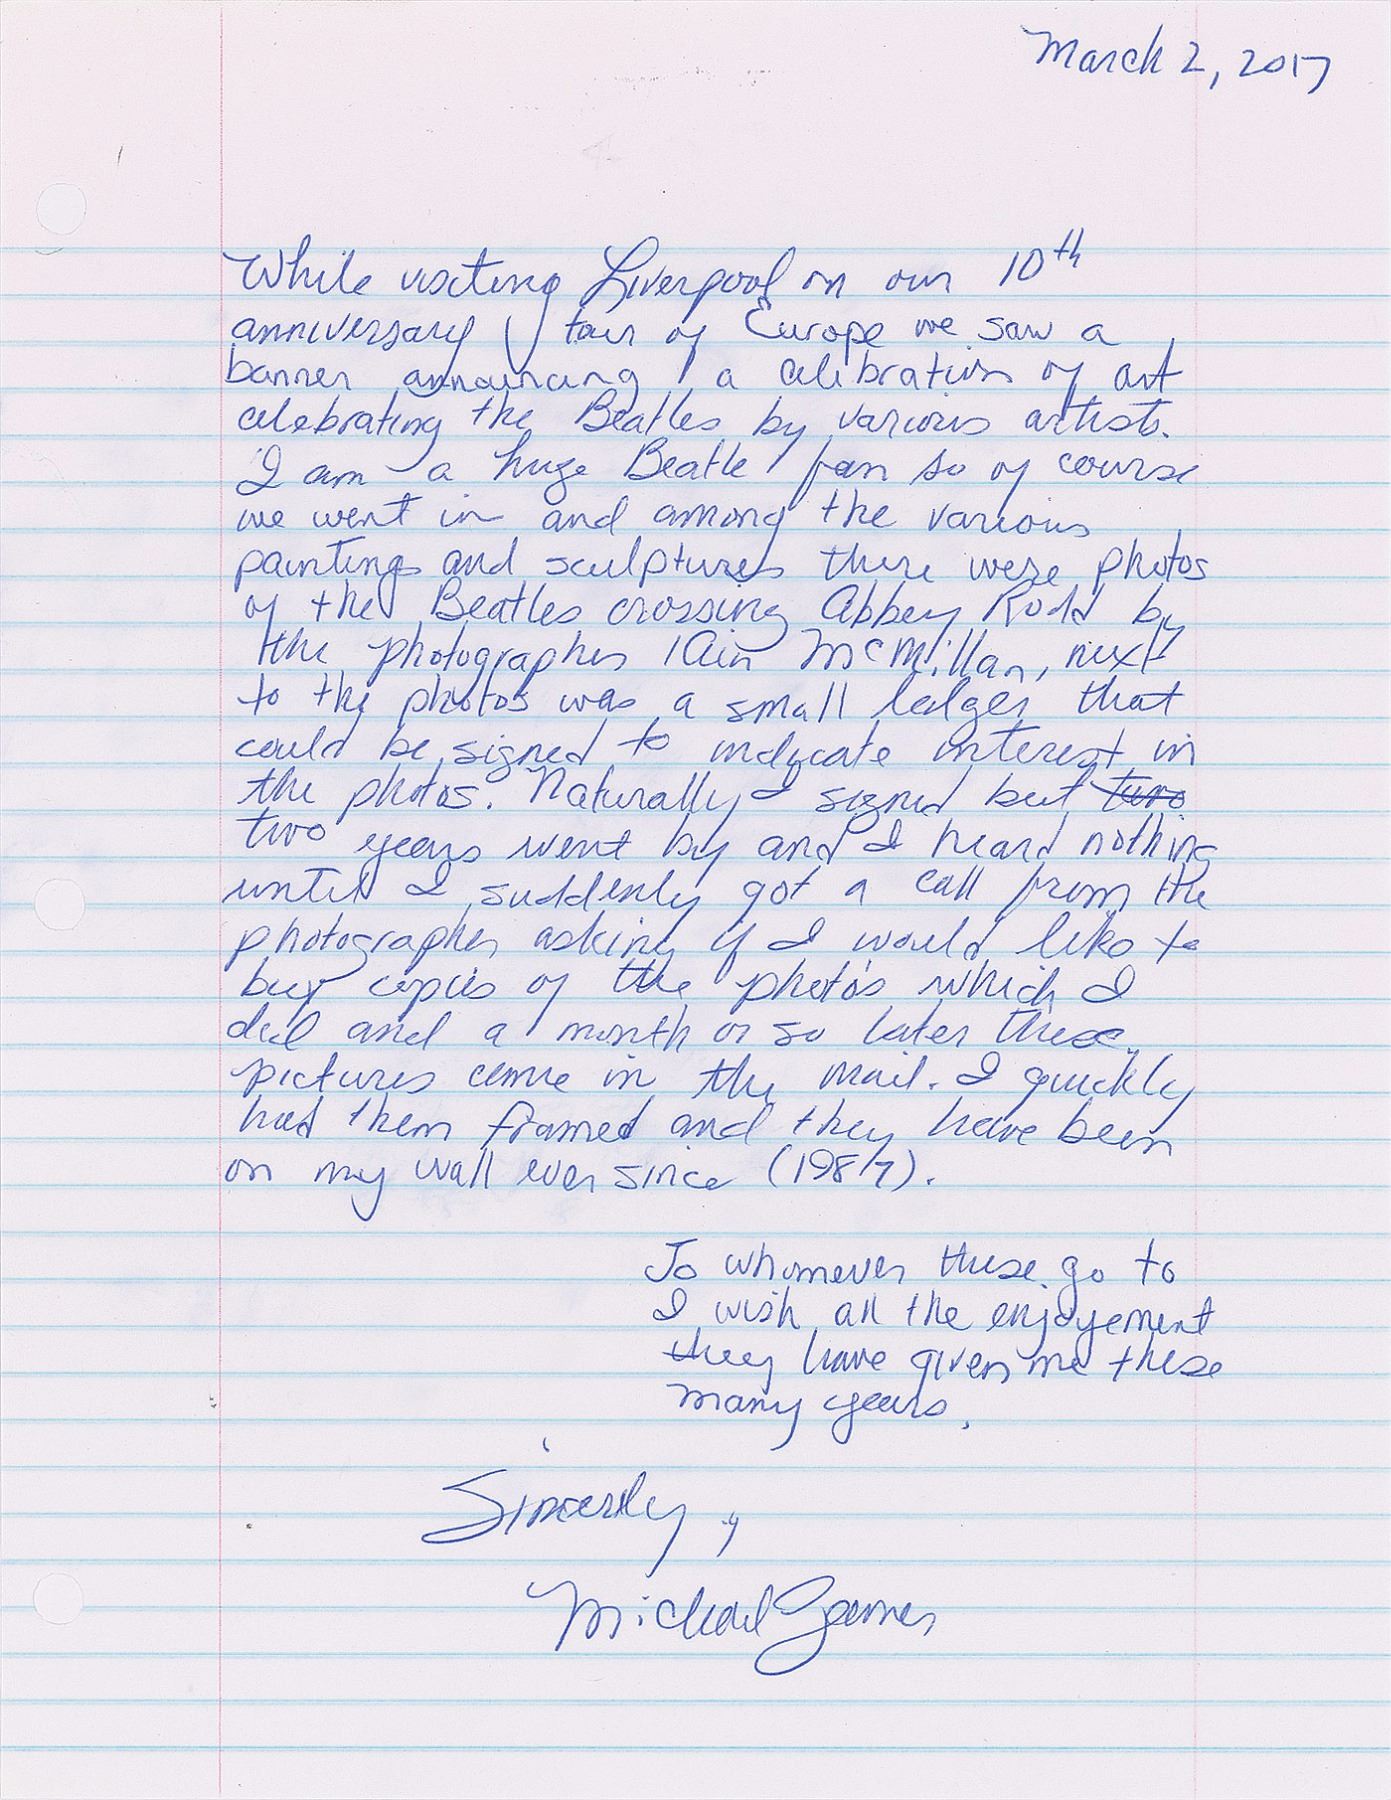 March 2, 2017
While visiting Liverpool on our 10th
anniversary tour of Europe we saw a
banner announcing a celibration of art
celebrating the Beatles by various artists.
I am a huge Beatle fan so of course
we went in and among the various
paintings and sculptures there were photos
of the Beatles crossing Abbey Road by
the photographer Iain McMillan, next
to the photos was a small ledger that
could be signed to indicate interest in
the photos. Naturally I signed but two
two years went by and I heard nothing
until I suddenly got a call from the
photographer asking if I would like to
buy copies of the photo's which I
did and a month or so later these
pictures came in the mail. I quickly
had them framed and they have been
on my wall ever since (1987).
To whomever these go to
I wish all the enjoyement
they have given me these
many years.
Sincerely,
Michael